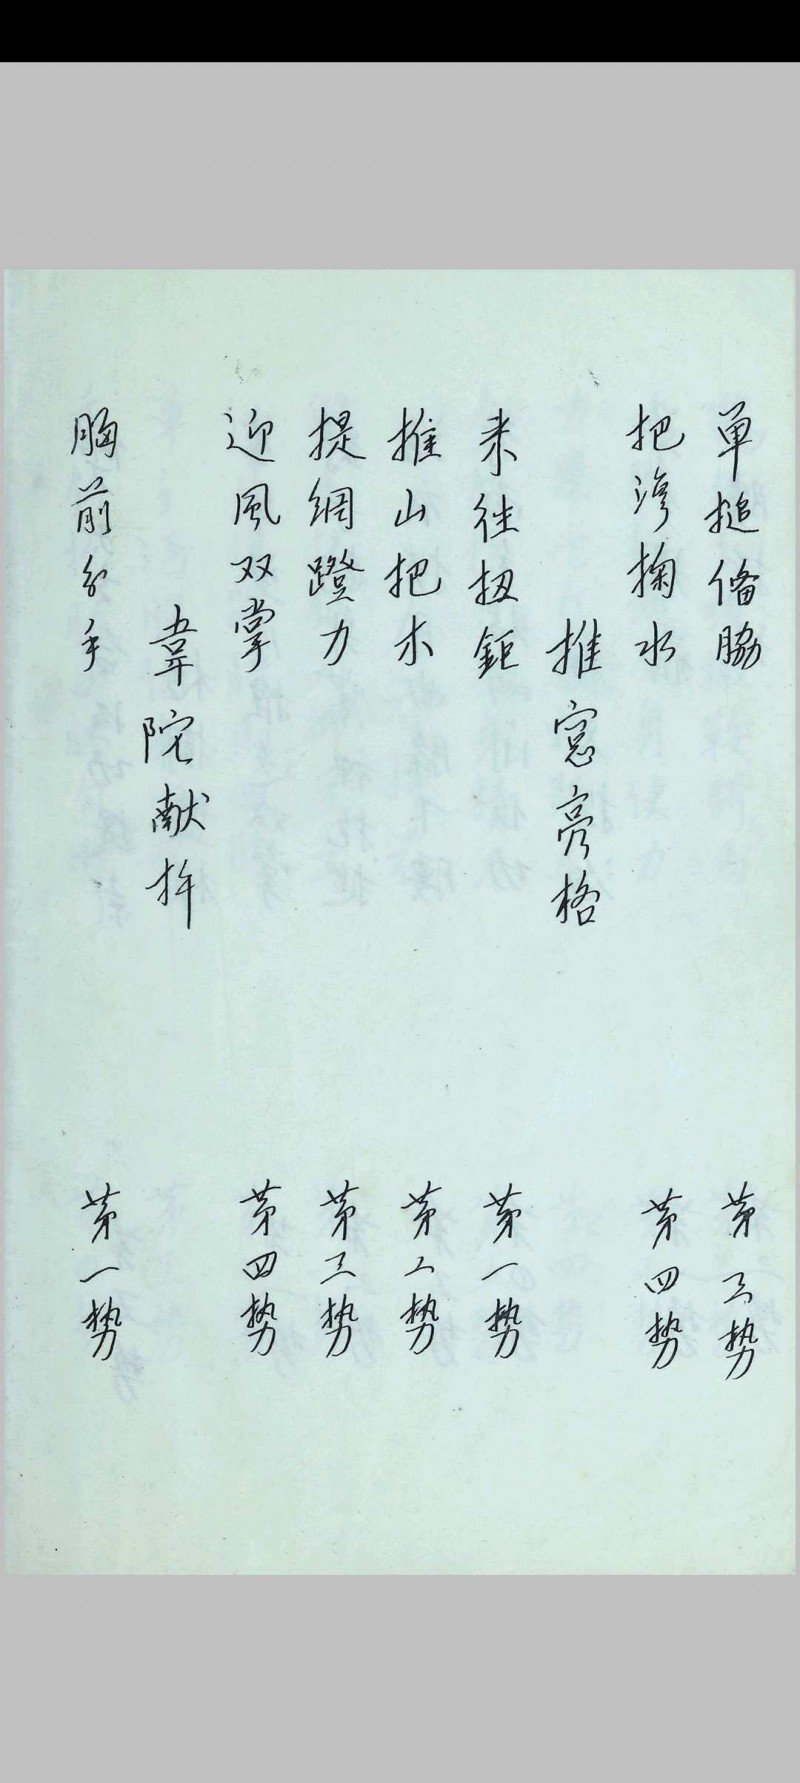 单搥偹脇 第三势
把湾掬水 第四势
推窓亮格
来往扭鉅 第一势
推山把木 第二势
提網蹬力 第三势
迎風双掌 第四势
韋陀献杵
胸前分手 第一势